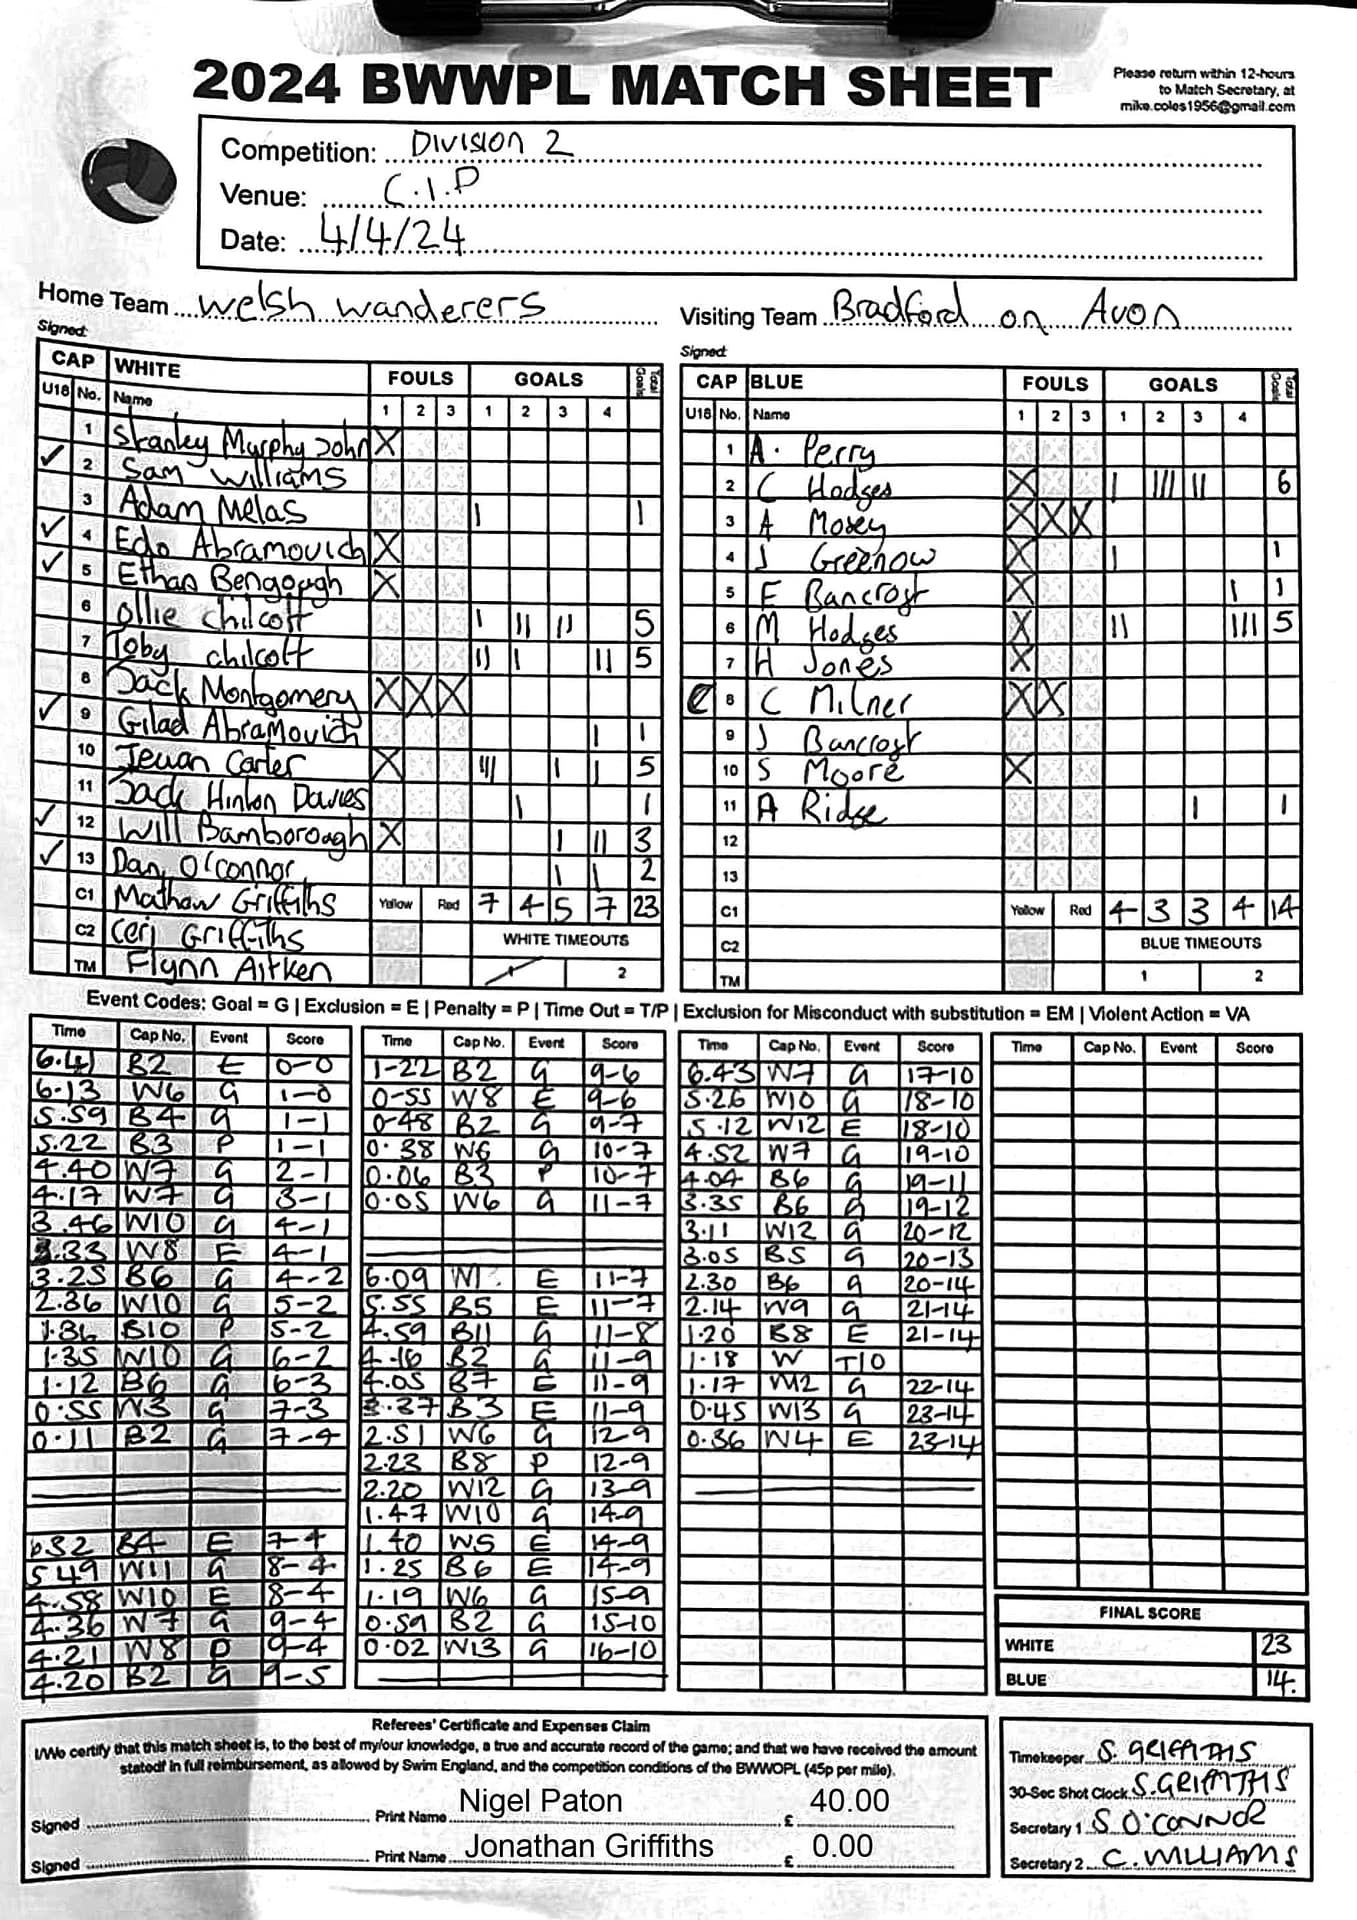 2024 BWWPL MATCH SHEET
Please return within 12-hours
to Match Secretary, at
mike.coles1956@gmail.com
Competition: Division 2
Venue: C.I.P
Date: 4/4/24
Home Team Welsh Wanderers
Signed:
CAP WHITE FOULS GOALS Total Goals
U18 No. Name 1 2 3 1 2 3 4
1 Stanley Murphy John X
✓ 2 Sam Williams
3 Adam Melas I 1
✓ 4 Edo Abramovich X
✓ 5 Ethan Bengough X
6 Ollie Chilcott I II II 5
7 Toby Chilcott II I II 5
8 Jack Montgomery X X X
✓ 9 Gilad Abramovich I 1
10 Jewan Carter X III I I 5
11 Jack Hinton Davies I 1
✓ 12 Will Bamborough X I II 3
✓ 13 Dan O'Connor I I 2
C1 Mathew Griffiths Yellow Red 7 4 5 7 23
C2 Ceri Griffiths WHITE TIMEOUTS
TM Flynn Aitken 1 2
Visiting Team Bradford on Avon
Signed:
CAP BLUE FOULS GOALS Total Goals
U18 No. Name 1 2 3 1 2 3 4
1 A. Perry
2 C Hodges X I III II 6
3 A Mosey X X X
4 J Greenow X I 1
5 E Bancroft X I 1
6 M Hodges X II III 5
7 H Jones X
C 8 C Milner X X
9 J Bancroft
10 S Moore X
11 A Ridge I 1
12
13
C1 Yellow Red 4 3 3 4 14
C2 BLUE TIMEOUTS
TM 1 2
Event Codes: Goal = G | Exclusion = E | Penalty = P | Time Out = T/P | Exclusion for Misconduct with substitution = EM | Violent Action = VA
Time Cap No. Event Score
6.41 B2 E 0-0
6.13 W6 G 1-0
5.59 B4 G 1-1
5.22 B3 P 1-1
4.40 W7 G 2-1
4.17 W7 G 3-1
3.46 W10 G 4-1
3.33 W8 E 4-1
3.25 B6 G 4-2
2.36 W10 G 5-2
1.36 B10 P 5-2
1.35 W10 G 6-2
1.12 B6 G 6-3
0.55 W3 G 7-3
0.11 B2 G 7-4
6.32 B4 E 7-4
5.49 W11 G 8-4
4.58 W10 E 8-4
4.36 W7 G 9-4
4.21 W8 P 9-4
4.20 B2 G 9-5
Time Cap No. Event Score
1-22 B2 G 9-6
0-55 W8 E 9-6
0-48 B2 G 9-7
0.38 W6 G 10-7
0.06 B3 P 10-7
0.05 W6 G 11-7
6.09 W1 E 11-7
5.55 B5 E 11-7
4.59 B11 G 11-8
4.16 B2 G 11-9
4.05 B7 E 11-9
3.37 B3 E 11-9
2.51 W6 G 12-9
2.23 B8 P 12-9
2.20 W12 G 13-9
1.47 W10 G 14-9
1.40 W5 E 14-9
1.25 B6 E 14-9
1.19 W6 G 15-9
0.59 B2 G 15-10
0.02 W13 G 16-10
Time Cap No. Event Score
6.43 W7 G 17-10
5.26 W10 G 18-10
5.12 W12 E 18-10
4.52 W7 G 19-10
4.04 B6 G 19-11
3.35 B6 G 19-12
3.11 W12 G 20-12
3.05 B5 G 20-13
2.30 B6 G 20-14
2.14 W9 G 21-14
1.20 B8 E 21-14
1.18 W T/O
1.17 W12 G 22-14
0.45 W13 G 23-14
0.36 W4 E 23-14
Time Cap No. Event Score
FINAL SCORE
WHITE 23
BLUE 14.
Referees' Certificate and Expenses Claim
I/We certify that this match sheet is, to the best of my/our knowledge, a true and accurate record of the game; and that we have received the amount
statedf in full reimbursement, as allowed by Swim England, and the competition conditions of the BWWOPL (45p per mile).
Signed Print Name Nigel Paton £ 40.00
Signed Print Name Jonathan Griffiths £ 0.00
Timekeeper S. GRIFFITHS
30-Sec Shot Clock S.GRIFFITHS
Secretary 1 S O'CONNOR
Secretary 2 C. WILLIAMS